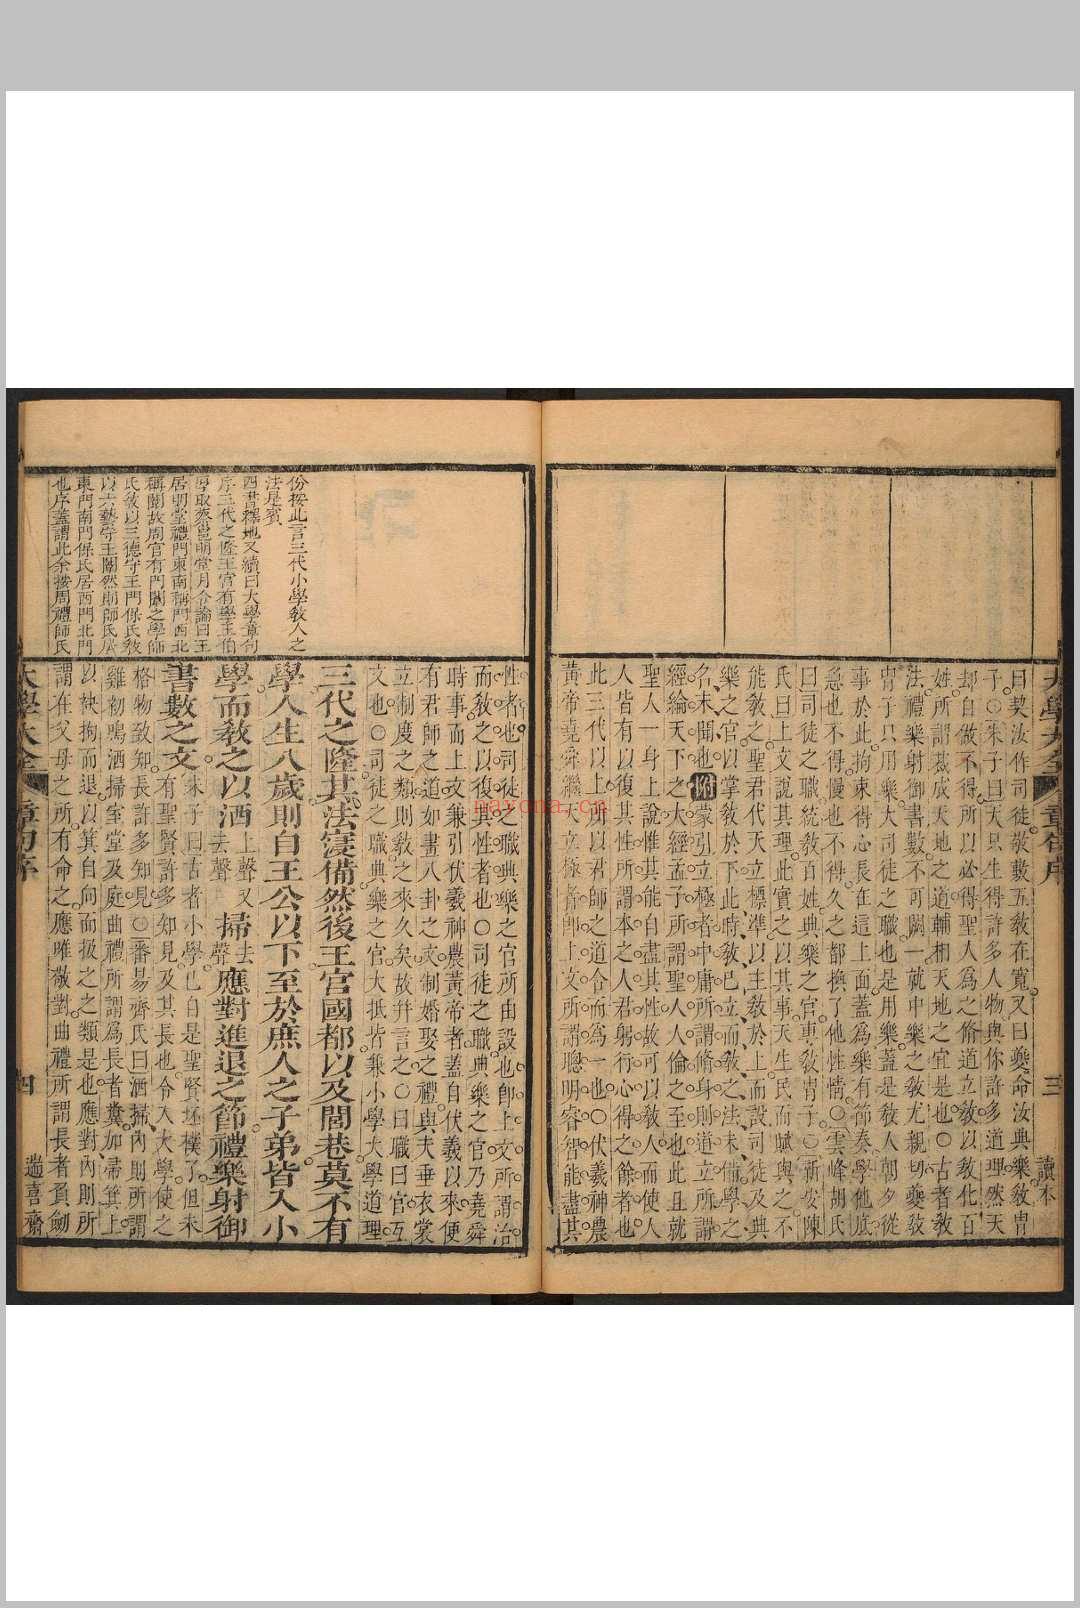 曰契汝作司徒敬敷五敎在寬又曰夔命汝典樂敎冑
子○朱子曰天只生得許多人物與你許多道理然天
却自做不得所以必得聖人爲之脩道立敎以敎化百
姓所謂裁成天地之道輔相天地之宜是也○古者敎
法禮樂射御書數不可闕一就中樂之敎尤親切夔敎
冑子只用樂大司徒之職也是用樂蓋是敎人朝夕從
事於此拘束得心長在這上面蓋爲樂有節奏學他底
急也不得慢也不得久之都換了他性情○雲峰胡氏
曰司徒之職統敎百姓典樂之官專敎冑子○新安陳
氏曰上文說原理此實之以其事天生民而賦與之不
能敎之聖君代天立標準以主敎於上而設司徒及典
樂之官以掌敎於下此時敎已立而敎之法未備學之
名未聞也附蒙引立極者中庸所謂脩身則道立所謂
經綸天下之大經孟子所謂聖人人倫之至也此且就
聖人一身上說惟其能自盡其性故可以敎人而使人
人皆有以復其性所謂本之人君躬行心得之餘者也
此三代以上所以君師之道合而爲一也○伏羲神農
黃帝堯舜繼天立極者卽上文所謂聰明睿智能盡其
大學大全
章句序
三
讀本
性者也司徒之職典樂之官所由設也卽上文所謂治
而敎之以復其性者也○司徒之職典樂之官乃堯舜
時事而上文兼引伏羲神農黃帝者蓋自伏羲以來便
有君師之道如畫八卦之文制婚娶之禮與夫垂衣裳
立制度之類則敎之來久矣故幷言之○曰職曰官互
文也○司徒之職典樂之官大抵皆兼小學大學道理
三代之隆其法寖備然後王宮國都以及閭巷莫不有
學人生八歲則自王公以下至於庶人之子弟皆入小
學而敎之以洒上聲又去聲掃去聲應對進退之節禮樂射御
書數之文朱子曰古者小學已自是聖賢坯樸了但未
有聖賢許多知見及其長也令入大學使之
格物致知長許多知見○番易齊氏曰洒掃內則所謂
雞初鳴洒掃室堂及庭曲禮所謂爲長者糞加帚箕上
以袂拘而退以箕自向而扱之之類是也應對內則所
謂在父母之所有命之應唯敬對曲禮所謂長者負劒
份按此言三代小學敎人之
法是賓
四書釋地又續曰大學章句
序三代之隆王宮有學王伯
厚取蔡邕明堂月令論曰王
居明堂禮門東南稱門西北
稱闈故周官有門闈之學師
氏敎以三德守王門保氏敎
以六藝守王闈然則師氏居
東門南門保氏居西門北門
也序蓋謂此余按周禮師氏
大學大全
章句序
四
遄喜齋
nayona.cn